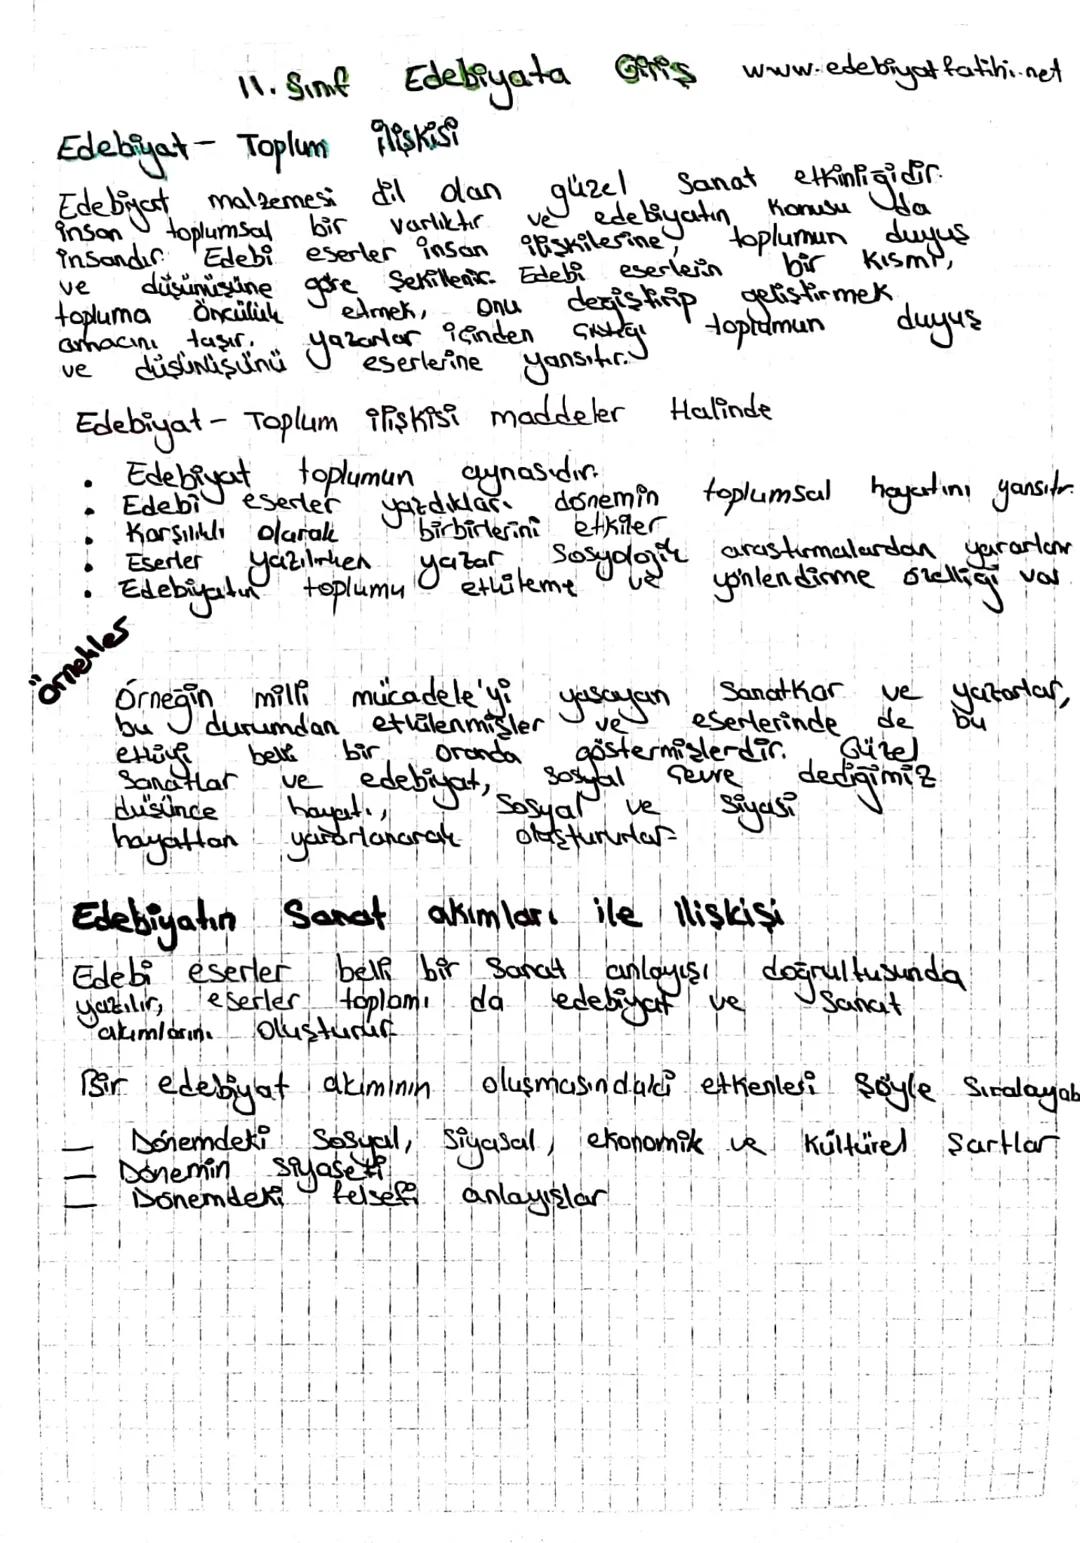 11. Sınıf Edebiyata Giriş www.edebiyatfatihi.net
Edebiyat - Toplum ilişkisi
Edebiyat malzemesi dil olan güzel sanat etkinliğidir.
insan toplumsal bir varlıktır ve edebiyatın konusu da
insandır. Edebi eserler insan ilişkilerine, toplumun duyuş
ve düşünüşüne göre şekillenir. Edebi eserlerin bir kısmı,
topluma öncülük etmek, onu değiştirip geliştirmek
amacını taşır. yazarlar içinden çıktığı toplumun duyuş
ve düşünüşünü eserlerine yansıtır.
Edebiyat - Toplum ilişkisi maddeler Halinde
• Edebiyat toplumun aynasıdır.
• Edebi eserler yazdıkları dönemin toplumsal hayatını yansıtır.
• Karşılıklı olarak birbirlerini etkiler
• Eserler yazılırken yazar Sosyolojik araştırmalardan yararlanır
• Edebiyatın toplumu etkileme ve yönlendirme özelliği var
örnekler
Örneğin milli mücadele'yi yaşayan Sanatkar ve yazarlar,
bu durumdan etkilenmişler ve eserlerinde de bu
etkiyi belli bir oranda göstermişlerdir. Güzel
Sanatlar ve edebiyat, sosyal çevre dediğimiz
düşünce hayatı, Sosyal ve Siyasi
hayattan yararlanarak oluştururlar
Edebiyatın Sanat akımları ile ilişkişi
Edebi eserler belli bir Sanat anlayışı doğrultusunda
yazılır, eserler toplamı da edebiyat ve Sanat
akımlarını oluşturur
Bir edebiyat akımının oluşmasındaki etkenleri Şöyle Sıralayab
— Dönemdeki Sosyal, Siyasal, ekonomik ve Kültürel Şartlar
— Dönemin Siyaseti
— Dönemdeki felsefi anlayışlar